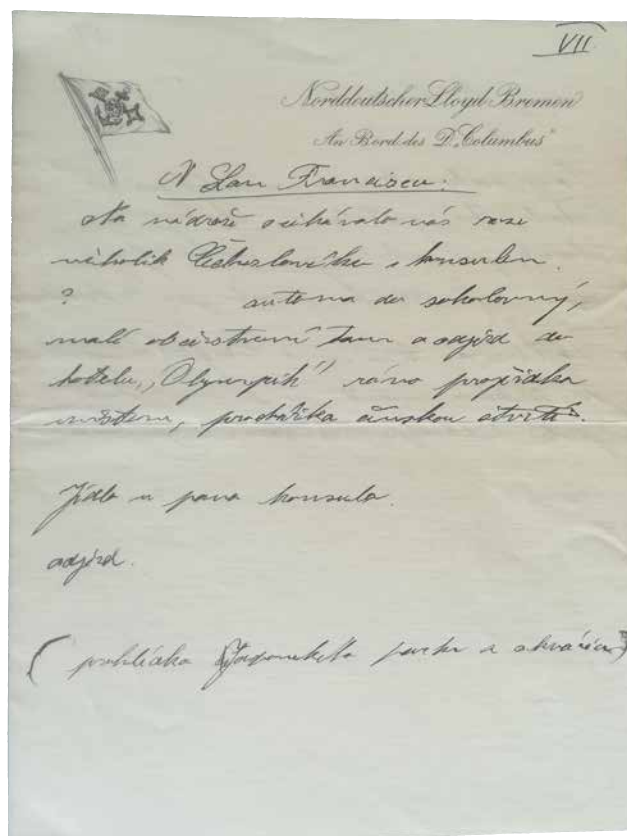 VII
Norddeutscher Lloyd Bremen
An Bord des D. „Columbus"
V San Franciscu:
Na nádraží očekávalo nás zase
několik Čechoslováků s konsulem.
? autema do sokolovny,
malé občerstvení tam a odjezd do
hotelu „Olympik" ráno projížďka
městem, procházka čínskou čtvrtí.
Jídlo u pana konsula.
odjezd.
(prohlídka Japonského parku a akvária)